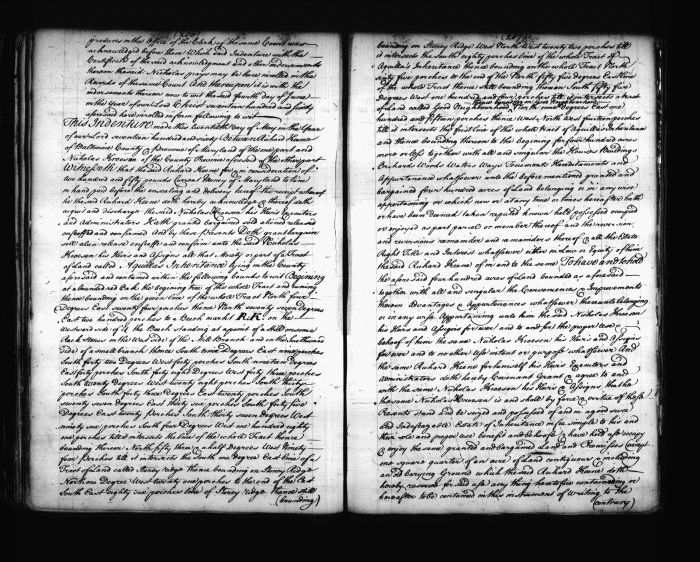 produces in the Office of the Clerk of the same Court was
acknowledged before them Which said Indenture with the
Certificate of the said acknowledgment and other indorsements
thereon the said Nicholas prays may be here inrolled in the
Records of the same Court And thereupon it is with the
indorsements thereon now to wit the said fourth day of June
in the Year of our Lord Christ seventeen hundred and
aforesaid here inrolled in form following to wit
This Indenture made this twentieth day of May in the Year
of our Lord seventeen hundred and Between Richard Keene
of Baltimore County & province of Maryland of the one part and
Nicholas Kroesen of the County & Province aforesaid of the other part
Witnesseth that the said Richard Keene for & in consideration of
two hundred and fifty pounds Current Money of Maryland to him
in hand paid before the ensealing and delivery hereof the receipt whereof
he the said Richard Keene doth hereby acknowledge & thereof doth
acquit and discharge the said Nicholas Kroesen his Heirs Executors
and Administrators Hath granted bargained sold aliened released
enfeoffed and confirmed And by these Presents Doth grant bargain
sell alien release enfeoffe and confirm unto the said Nicholas
Kroesen his Heirs and Assigns all that Moiety or part of a Tract
of land called Aquilas Inheritance lying in the County
aforesaid and contained within the following bounds to wit Beginning
at a bounded red Oak the begining tree of the whole Tract and runing
thence bounding on the given lines of the whole Tract North four
Degrees East seventy four perches thence North seventy seven Degrees
East two hundred perches to a Beech marked RR on the
Westward side of it the Beech standing at a point of a hill on some
Rock stones on the West side of the Mill Branch and on the Southmost
side of a small branch thence South nine degrees East nine perches
South forty two Degrees West forty perches South nineteen Degrees
East forty perches South forty eight Degrees West forty three perches
South twenty Degrees West twenty eight perches South thirty
perches South forty three Degrees East twenty perches South
seventy seven degrees East thirty six perches South forty five
Degrees East twenty Perches South thirty seven Degrees West
ninety six perches South four Degrees West one hundred eighty
one perches till it intersects the line of the whole Tract thence
bounding thereon North fifty three & a half Degrees West Ninety
five Perches till it intersects the South one Degree East line of a
Tract of land called Stoney Ridge thence bounding on Stoney Ridge
North one Degree West twenty one perches to the end of the East
South East eighty one perches line of Stoney ridge thence still
(bounding)
bounding on Stoney Ridge West North West twenty two perches till
it intersects the South eighty perches line of the whole Tract of
Aquilla's Inheritance thence bounding on the whole Tract North
sixty five perches to the end of the North fifty five degrees East line
of the whole Tract thence still bounding thereon South fifty five
Degrees West hundred and four perches till it intersects a tract
of land called Good Neighbourhood North Degrees East one
hundred and fifteen perches thence West North West fourteen perches
till it intersects the first line of the whole tract of Aquilas Inheritance
and thence bounding thereon to the begining for four hundred acres
more or less together with all and singular the Houses Buildings
Orchards Woods Waters Ways Easements Hereditaments and
appurtenances whatsoever unto the before mentioned granted and
bargained four hundred acres of land belonging or in any wise
appertaining or which now or at any time or times heretofore hath
or have been deemed taken reputed known held possessed occupied
or enjoyed as part parcel or member thereof and the reversion
and reversions remainder and remainders thereof & all the Estate
Right Title and Interest whatsoever either in Law or Equity of him
the said Richard Keene of in and to the same To have and to hold
the aforesaid four hundred acres of land bounded as aforesaid
together with all and singular the Conveniences & Improvements
thereon Advantages & Appurtenances whatsoever thereunto belonging
or in any wise Appertaining unto him the said Nicholas Kroesen
his Heirs and Assigns for ever and to and for the proper use &
behoof of him the same Nicholas Kroesen his Heirs and Assigns
for ever and to no other use intent or purpose whatsoever And
the same Richard Keene for himself his Heirs Executors and
administrators doth hereby Covenant Grant & agree to and
with the same Nicholas Kroesen his Heirs & Assigns that he
the same Nicholas Kroesen is and shall by force & vertue of these
Presents stand and be seized and possessed of and in a good sure
and Indefeazable Estate of Inheritance in fee simple to his and
their sole and proper use benefit and behoofe & have hold use occupy
& enjoy the same granted and bargained Land and Premisses (except
one square quarter of an acre of land contiguous & including
an old burying Ground which the said Richard Keene doth
hereby reserve for said use any thing heretofore contained or
hereafter to be contained in this Instrument of Writing to the
(contrary)